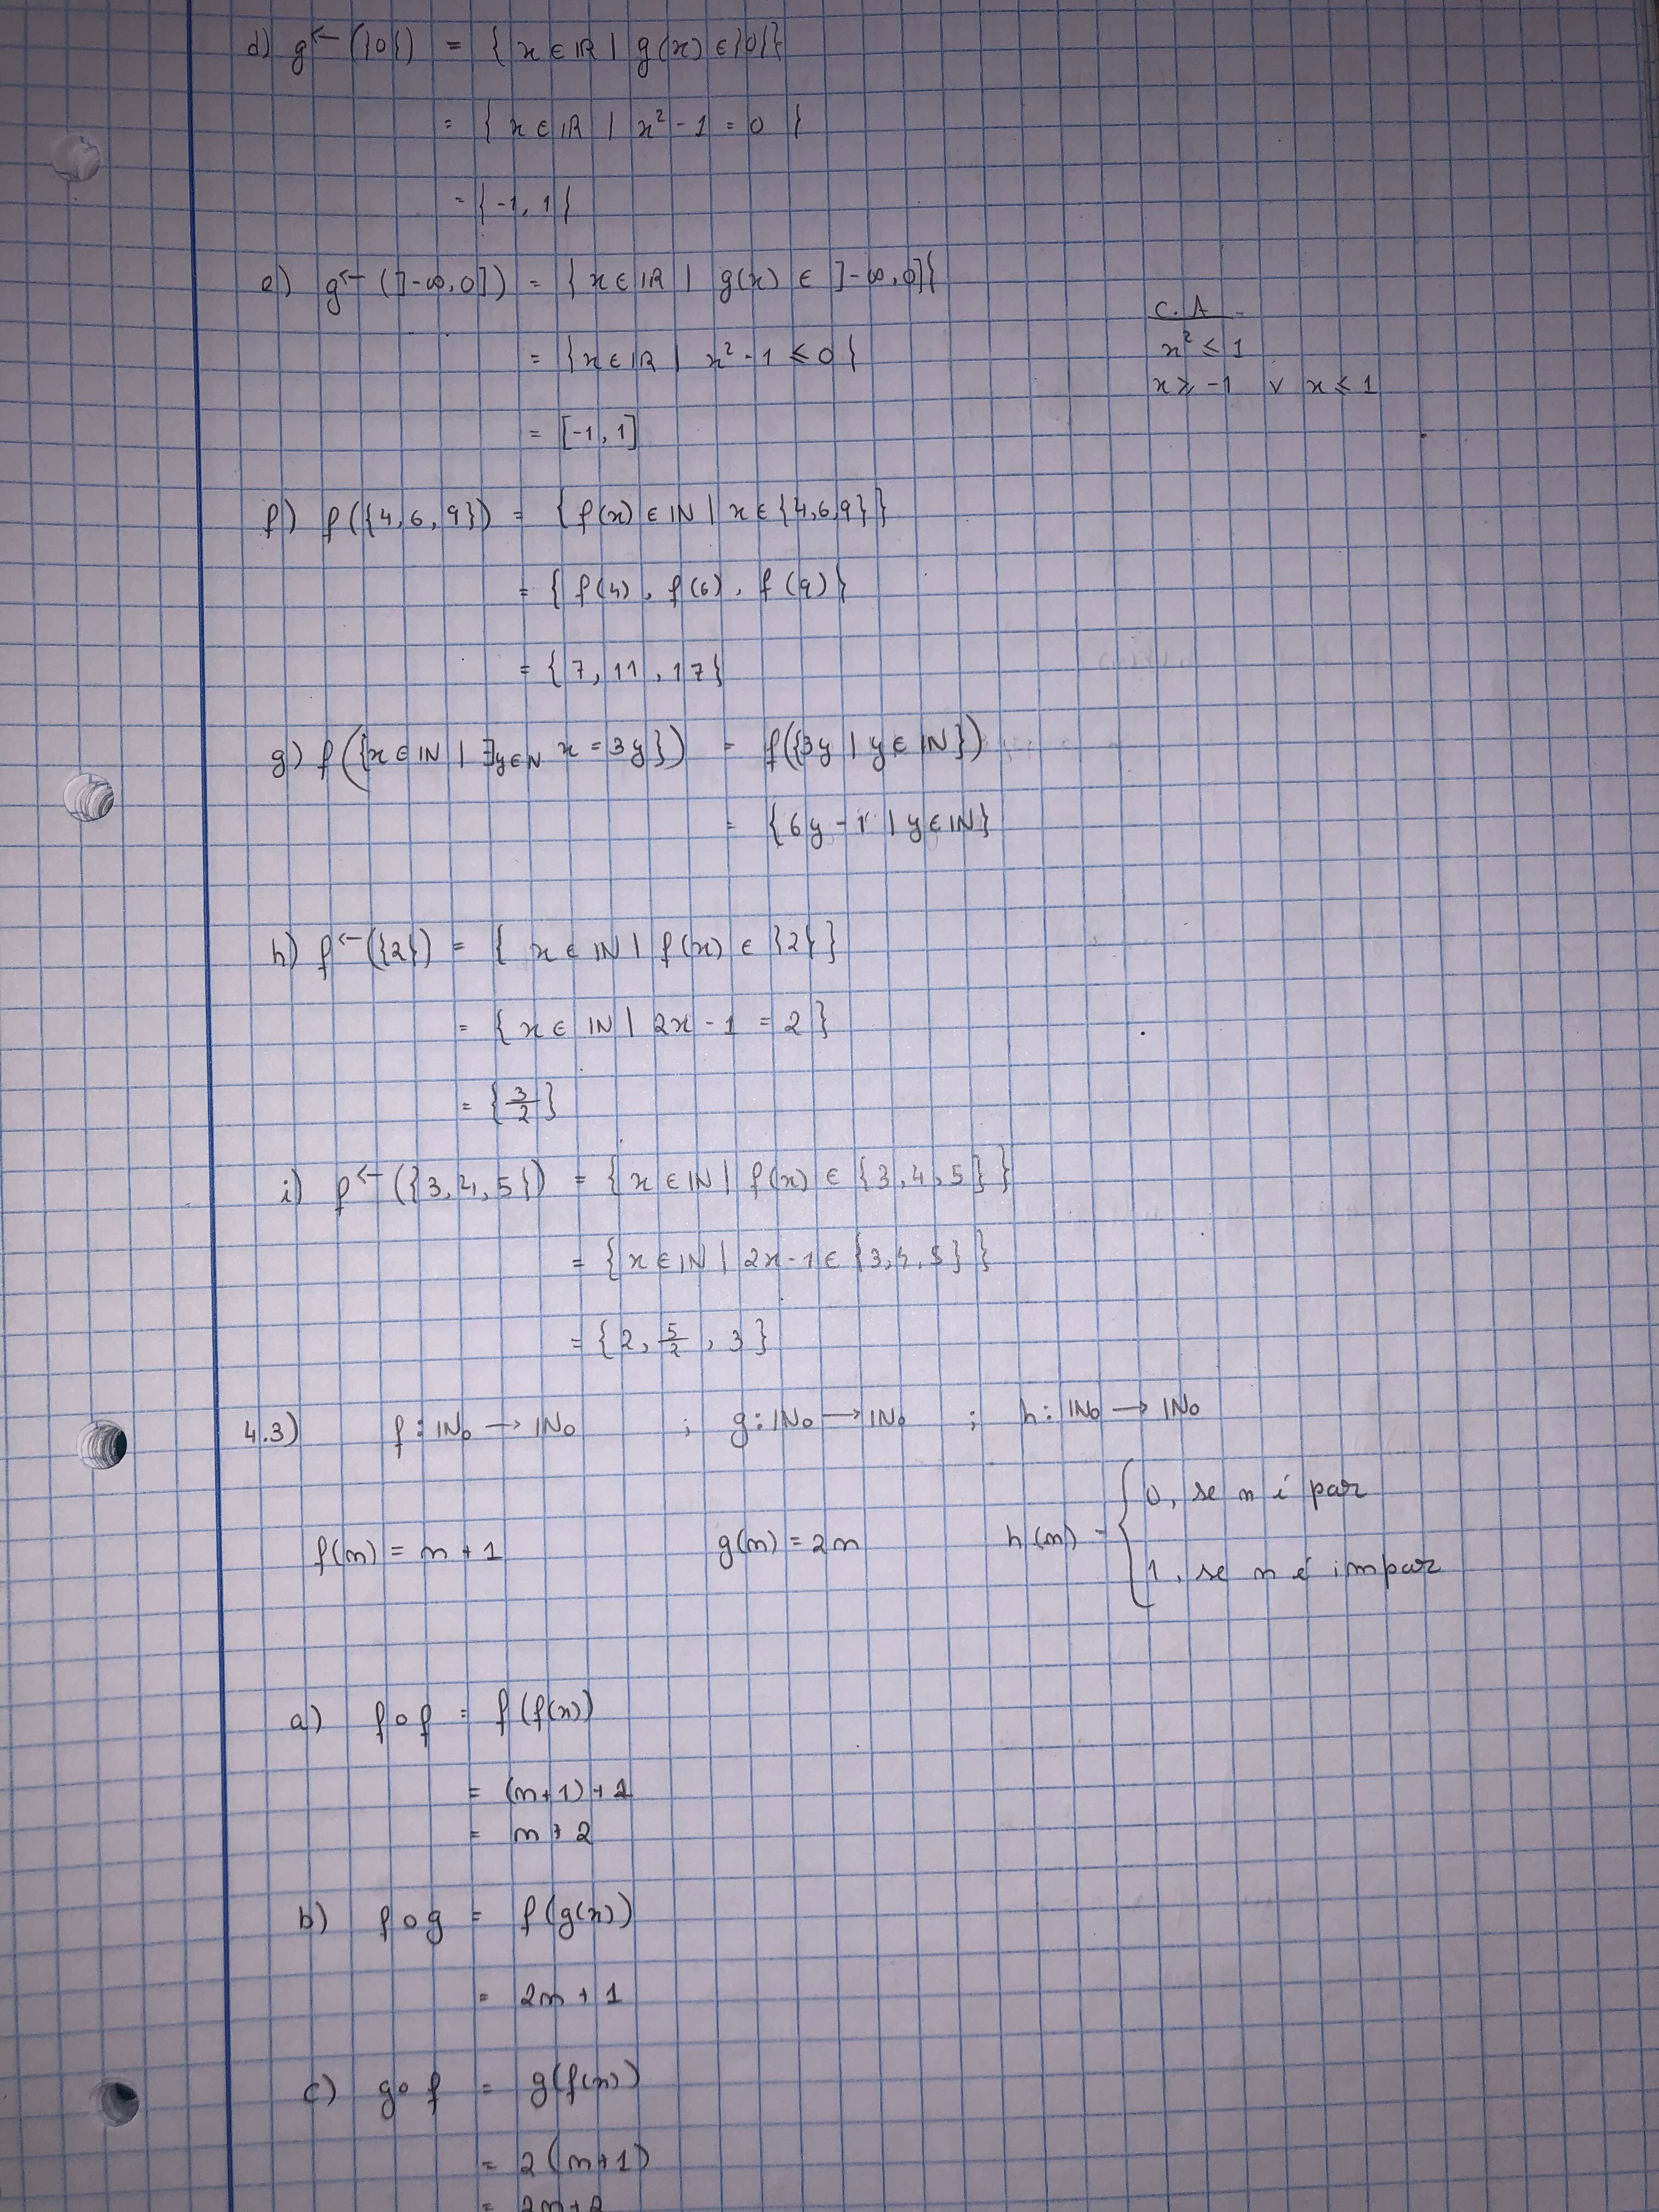 d) g← ({0}) = { x ∈ ℝ | g(x) ∈ {0}}
= { x ∈ ℝ | x² - 1 = 0 }
= { -1, 1 }
e) g← (]-∞, 0]) = { x ∈ ℝ | g(x) ∈ ]-∞, 0]}
= { x ∈ ℝ | x² - 1 ≤ 0 }
= [-1, 1]
C.A
x² ≤ 1
x ≥ -1 ∨ x ≤ 1
f) f({4, 6, 9}) = { f(x) ∈ ℕ | x ∈ {4,6,9}}
= { f(4), f(6), f(9)}
= { 7, 11, 17}
g) f({x ∈ ℕ | ∃y∈ℕ x = 3y}) = f({3y | y ∈ ℕ})
= {6y - 1 | y ∈ ℕ}
h) f← ({2}) = { x ∈ ℕ | f(x) ∈ {2} }
= { x ∈ ℕ | 2x - 1 = 2 }
= { 3/2 }
i) f← ({3, 4, 5}) = { x ∈ ℕ | f(x) ∈ {3, 4, 5} }
= { x ∈ ℕ | 2x - 1 ∈ {3, 4, 5} }
= { 2, 5/2, 3 }
4.3) f: ℕ₀ → ℕ₀ ; g: ℕ₀ → ℕ₀ ; h: ℕ₀ → ℕ₀
f(n) = n + 1 g(n) = 2n h(n) = { 0, se n é par
1, se n é impar
a) f∘f = f(f(x))
= (n+1) + 1
= n + 2
b) f∘g = f(g(x))
= 2n + 1
c) g∘f = g(f(x))
= 2(n+1)
= 2n+2